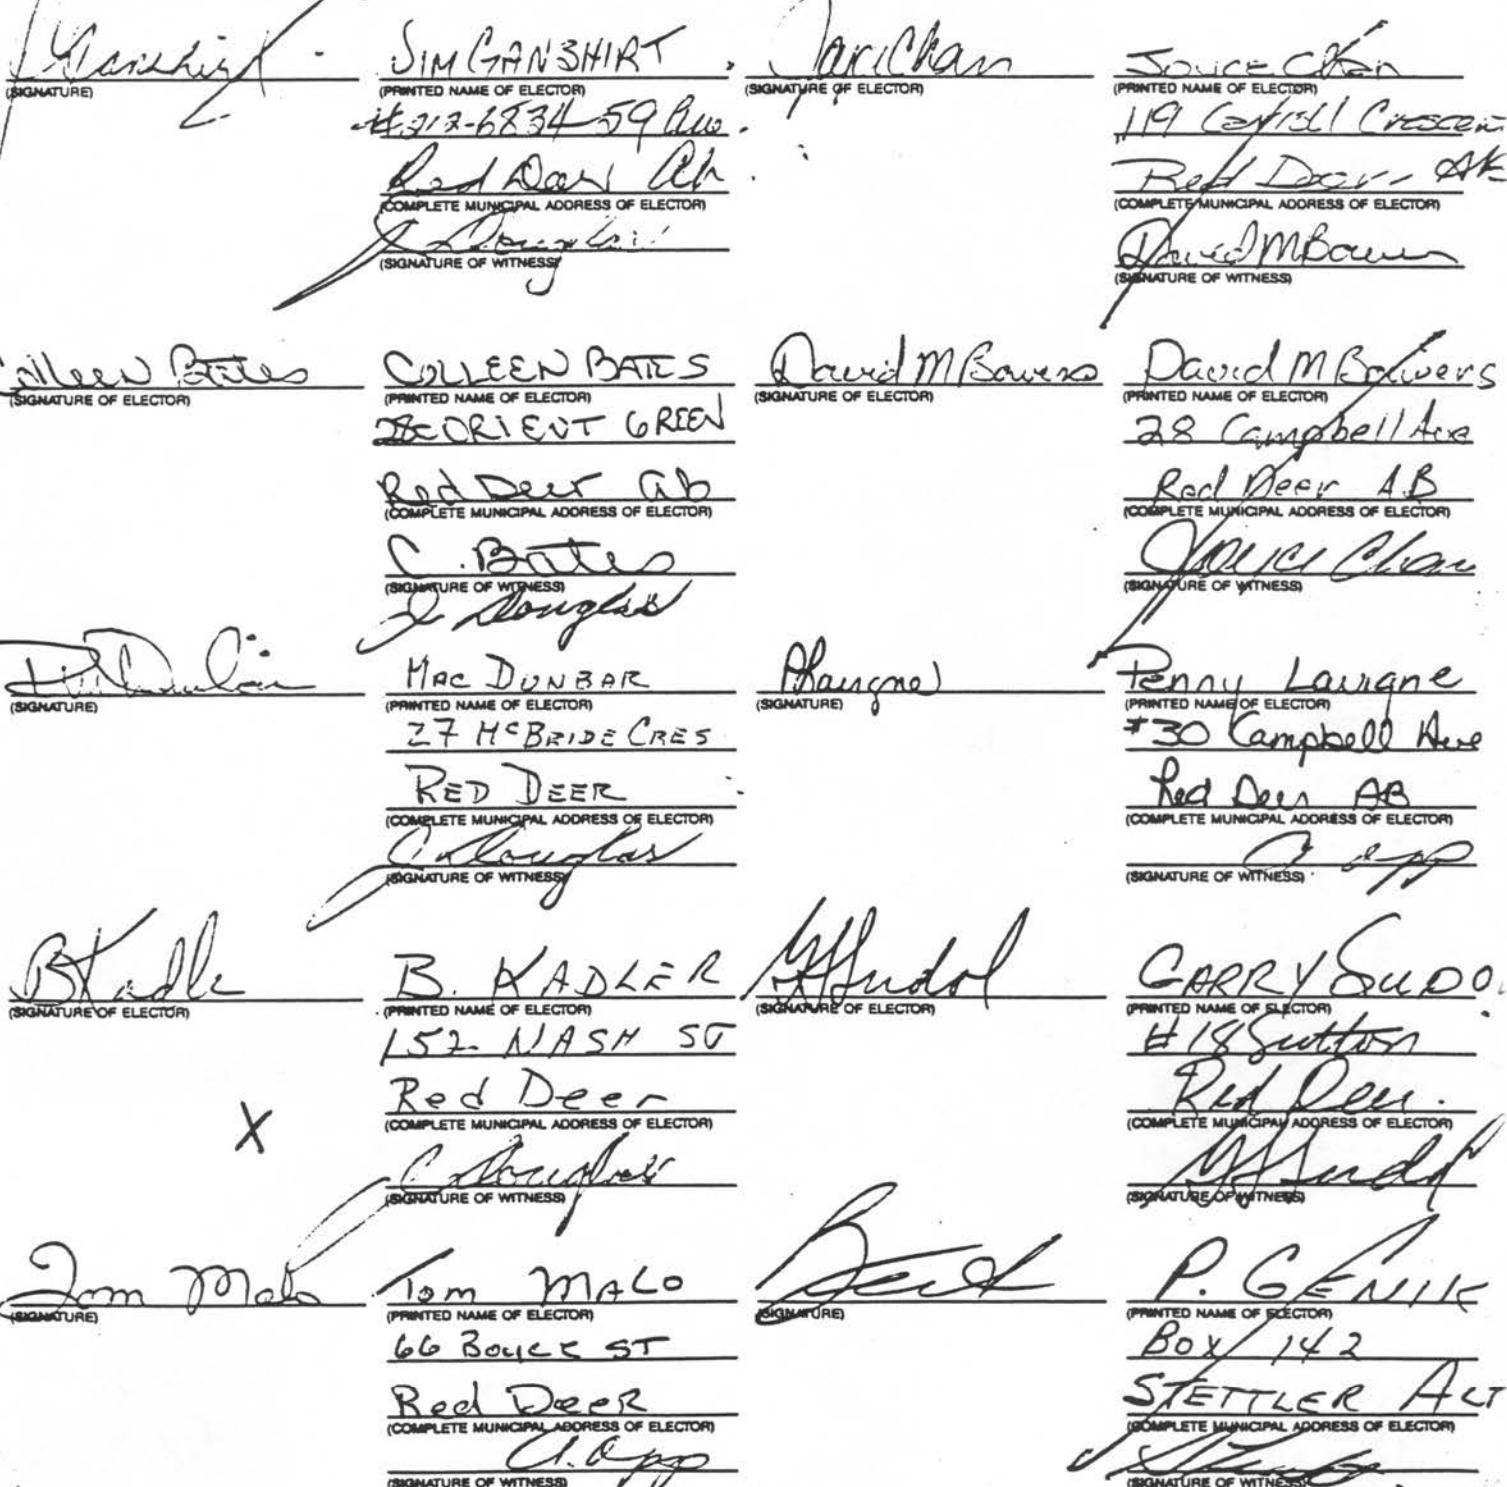 (SIGNATURE)
JIM GANSHIRT
(PRINTED NAME OF ELECTOR)
#212-6834-59 Ave.
Red Deer Ab.
(COMPLETE MUNICIPAL ADDRESS OF ELECTOR)
Douglas
(SIGNATURE OF WITNESS)
Chan
(SIGNATURE OF ELECTOR)
JOYCE Chan
(PRINTED NAME OF ELECTOR)
119 Crescent
Red Deer AB
(COMPLETE MUNICIPAL ADDRESS OF ELECTOR)
David M Bowers
(SIGNATURE OF WITNESS)
Colleen Bates
(SIGNATURE OF ELECTOR)
COLLEEN BATES
(PRINTED NAME OF ELECTOR)
ORIENT GREEN
Red Deer Ab
(COMPLETE MUNICIPAL ADDRESS OF ELECTOR)
C. Bates
(SIGNATURE OF WITNESS)
Douglas
David M Bowers
(SIGNATURE OF ELECTOR)
David M Bowers
(PRINTED NAME OF ELECTOR)
28 Campbell Ave
Red Deer AB
(COMPLETE MUNICIPAL ADDRESS OF ELECTOR)
Joyce Chan
(SIGNATURE OF WITNESS)
Dunbar
(SIGNATURE)
MAC DUNBAR
(PRINTED NAME OF ELECTOR)
27 McBRIDE CRES
RED DEER
(COMPLETE MUNICIPAL ADDRESS OF ELECTOR)
Douglas
(SIGNATURE OF WITNESS)
PLavigne
(SIGNATURE)
Penny Lavigne
(PRINTED NAME OF ELECTOR)
#30 Campbell Ave
Red Deer AB
(COMPLETE MUNICIPAL ADDRESS OF ELECTOR)
(SIGNATURE OF WITNESS)
B Kadle
(SIGNATURE OF ELECTOR)
B. KADLER
(PRINTED NAME OF ELECTOR)
152 NASH ST
Red Deer
(COMPLETE MUNICIPAL ADDRESS OF ELECTOR)
X
Douglas
(SIGNATURE OF WITNESS)
Sudol
(SIGNATURE OF ELECTOR)
GARRY SUDOL
(PRINTED NAME OF ELECTOR)
#18 Sutton
Red Deer.
(COMPLETE MUNICIPAL ADDRESS OF ELECTOR)
Sudol
(SIGNATURE OF WITNESS)
Tom Malo
(SIGNATURE)
Tom MALO
(PRINTED NAME OF ELECTOR)
66 Boyce ST
Red Deer
(COMPLETE MUNICIPAL ADDRESS OF ELECTOR)
A. Opp
(SIGNATURE OF WITNESS)
(SIGNATURE)
P. GENIK
(PRINTED NAME OF ELECTOR)
BOX 142
STETTLER ALT
(COMPLETE MUNICIPAL ADDRESS OF ELECTOR)
(SIGNATURE OF WITNESS)